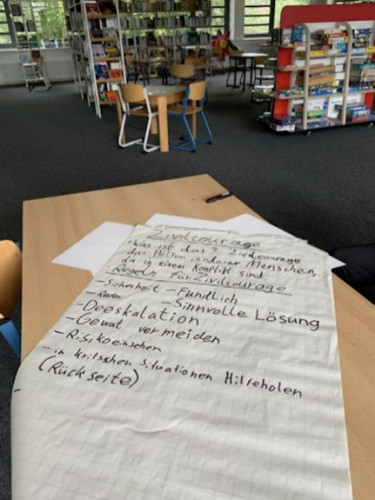 Zivilcourage
- Was ist das? Zivilcourage
das Helfen anderer Menschen,
die in einen Konflikt sind.
- Regeln für Zivilcourage
- Sicherheit - Fundlich
- Sinnvolle Lösung
- Deeskalation
- Gewat vermeiden
- Risikoeinschen
- in kritschen situationen Hilfeholen
(Rückseite)